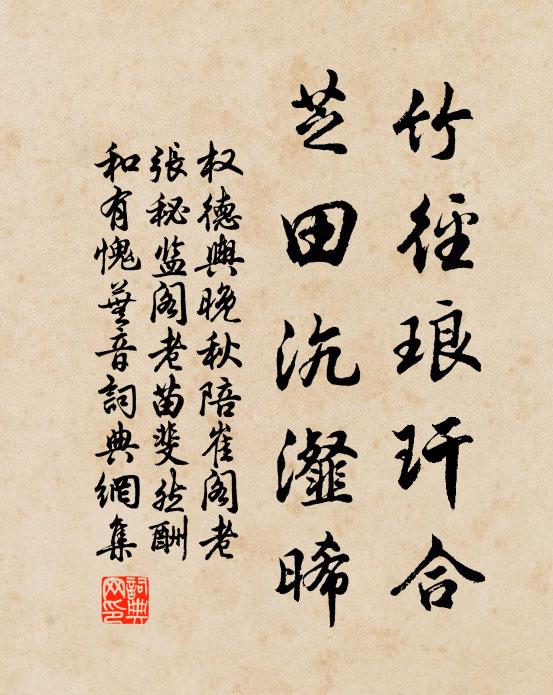 竹径琅玕合
芝田沆瀣晞
权德舆晚秋陪崔阁老
張秘监阁老苗斐然酬
和有愧蕪音詞典網集
詞典網印